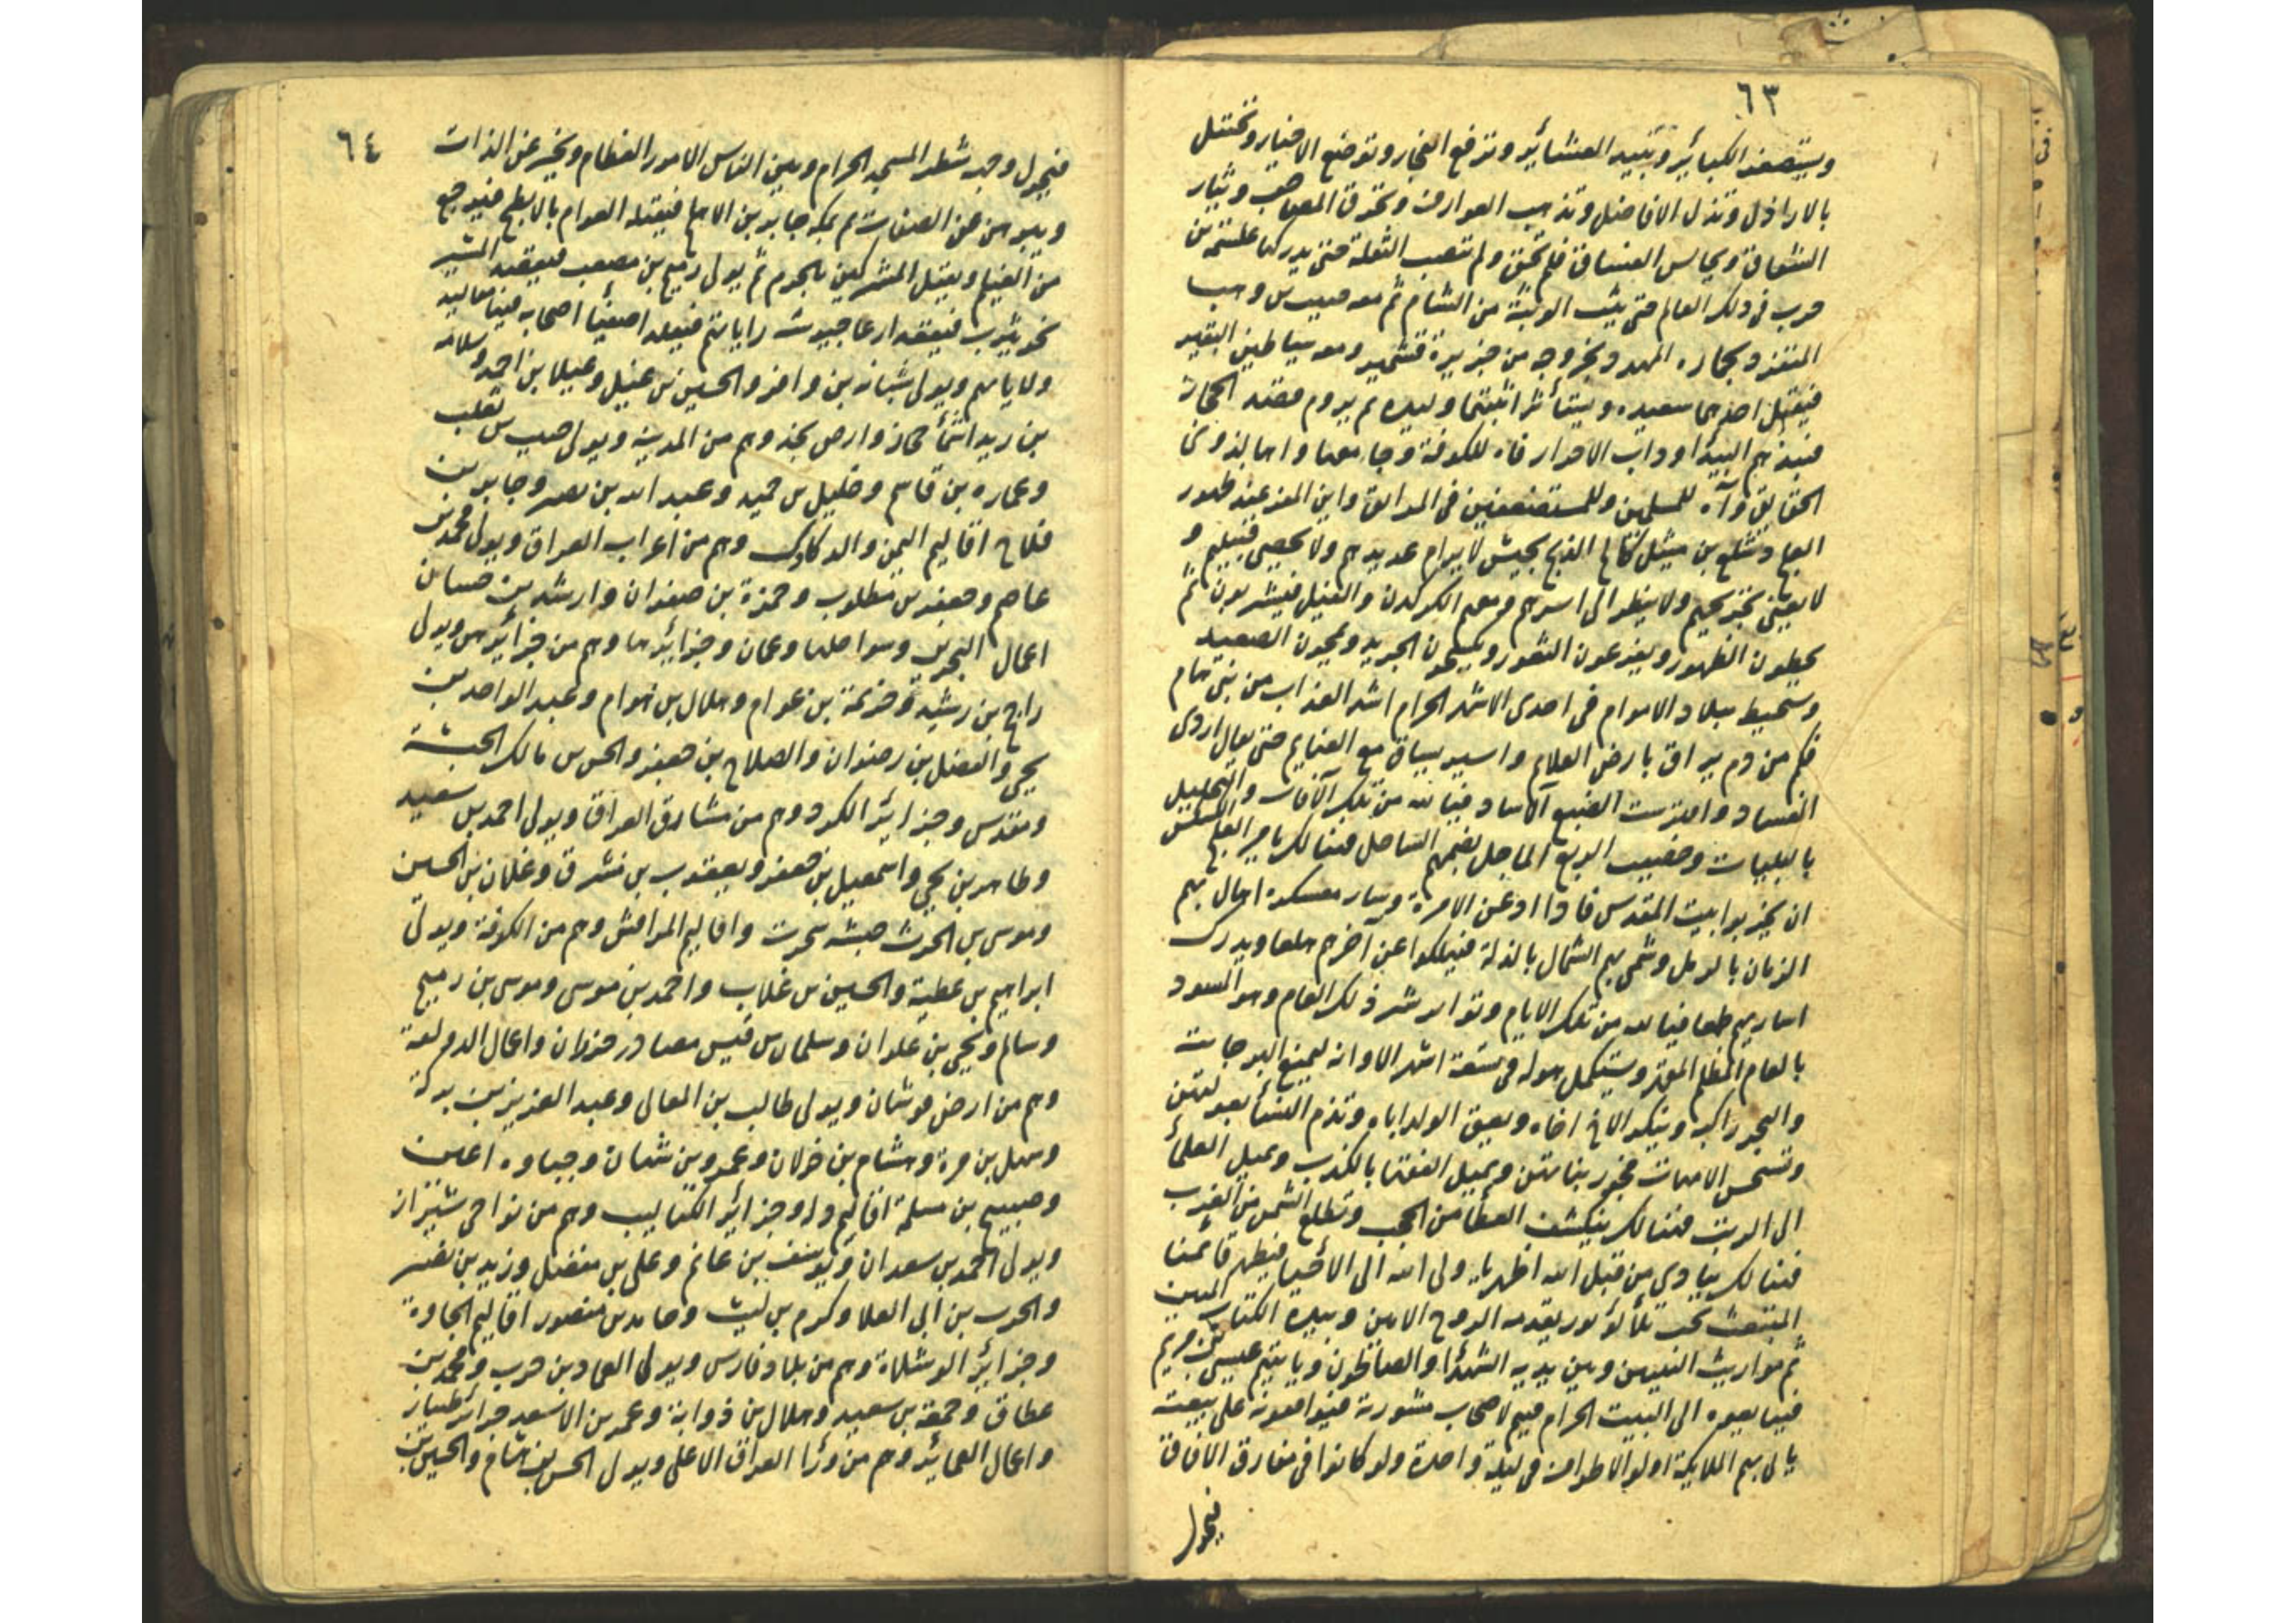 ٦٣
ويستصغر الكبائر وتبيد العشائر وترفع الفجار وتوضع الاخيار وتختتل
بالاراذل وتذل الافاضل وتذهب العوارف وتحرق المصاحف وتثار
الشقاق ويجالس الفساق فلم تحق ولم تتصب الثقلة حتى يدركها علقمة بن
حرب فى ذلك العالم حتى يثب الوثبة من الشام ثم معه حبيب بن وهب
المتفرد بجاره المهد وبخروجه من جزيرة قشمير ومعه شياطين البقير
فيقتل احدهما سعيده ويستأثر اثبتها وليده ثم يروم قصد الحجاز
فينذهم البيدا وداب الاحرار فاه للكوفة وجامعها واها لذوى
الحقايق وآه للمسلمين وللمستضعفين فى المدايق واين المفر عند ظهور
العاج شلع بن ميثل كالح القبح بجيش لا يرام عديدهم ولا يحصى قتيلهم و
لا يعتنى بجريحهم ولا ينظر الى اسيرهم ومعهم الكركدن والفيل فيشربون ثم
يحطون الظهور ويفزعون الثغور ويمنعون الجريد ويمحون الصعيد
وستحيط ببلاد الاهرام فى احدى الاشهر الحرام اشد العذاب من بنى حام
فكم من دم يراق بارض العلايم واسير يساق مع الغنايم حتى يقال اروى
الفساد وافترست الضبع الآساد فيا لله من تلك الآفات والتجلبب
بالبليات وخضبت الربع الماحل لضمهم الساحل فهنالك يامر العلج الكسكس
ان يخربوا بيت المقدس فاذا اذعن الامرة وسار معسكره احال بهم
الزمان بالرمل وشمى بهم الشمال بالذلة فيهلكوا عن آخرهم هلعا ويدرك
اساريهم طمعا فيا لله من تلك الايام وتواتر شر ذلك العام وهو المسود
بالعام المظلم المقهر ويستكمل هوله فى تسعة اشهر الا وانه ليمنع البر جانبه
والبحر راكبه وينكر الاخ اخاه ويعيق الولد اباه وتذم النساء بعولتهن
وتستحسن الامهات فجور بناتهن ويميل الفقها بالكذب ويميل العلما
الى الريب فهنالك ينكشف الغطا من الحجب وتطلع الشمس من الغرب
فهنالك ينادى من قبل الله اظهر يا ولى الله الى الاحيا فيظهر قائمنا
المتبعث تحت تلألؤ نور يقدمه الروح الامين وبيده الكتاب المبين
ثم مواريث النبيين وبين يديه الشهدا والصالحون وياتيهم عيسى بن مريم
فيبايعوه الى البيت الحرام فيهم لاصحاب مشورته فيوافقونه على بيعته
ياتيهم الملايكة اولوا الاطراف فى ليلة واحدة ولو كانوا فى مفارق الآفاق
فيحول
٦٤
فيحول وجهه شطر المسجد الحرام وبين الناس الامور العظام ويخبر عن الذات
ويبرهن عن الصفات ثم بمكه جابر بن الاهلح فيقتله العوام بالابطح فيرجع
من الغيلم ويقتل المشركين بالحرم ثم يولى ربيع بن مصعب فيقصد السير
نحو يثرب فيعقد ارعا جيوشه راياتهم فيقلد اصفيا اصحابه فينا معاليه
ولاياتهم ويولى شبانه بن وافر والحسين بن عقيل وعيلا بن احمد وسلامه
بن زيد اثنا حجاز وارض نجد وهم من المدينة ويولى حبيب بن تغلب
وعماره بن قاسم وخليل بن حميد وعبد الله بن نصر وجابر بن
فلاح اقاليم اليمن والدكادك وهم من اعراب العراق ويولى محمد بن
عاصم وجعفر بن مطلوب وحمزة بن صفوان وراشد بن حسان
اعمال البحرين وسواحلها وعمان وجزائرها وهم من جزائرهن ويولى
راجح بن رشيد وخزيمة بن عوام وهلال بن همام وعبد الواحد بن
يحيى والفضل بن رضوان والصلاح بن جعفر والحسن بن مالك الحبشة
ومقدس وجزائر الكرد وهم من مشارق العراق ويولى احمد بن سعيد
وطاهر بن يحيى واسمعيل بن جعفر ويعقوب بن مشرق وغلان بن الحسين
وموسى بن الحرث حبشه بحرت واقاليم المراقش وهم من الكوفة ويولى
ابراهيم بن عطية والحسين بن غلاب واحمد بن موسى وموسى بن رميح
وسالم ويحيى بن علوان وسلمان بن قيس مصادر حزران واعمال الدولعة
وهم من ارض قوشان ويولى طالب بن العالى وعبد العزيز بن بركة
وسهل بن مرة وهشام بن خولان وعمرو بن شهاب وجياده اعين
وصبيح بن مسلم اقاليم واد وجزائر الكتاليب وهم من نواحى شيراز
ويولى احمد بن سعدان ويوسف بن غانم وعلى بن مفضل وزيد بن نضر
والحرب بن ابى العلا وكرم بن ليث وحامد بن منصور اقاليم الجاوة
وجزائر الوشلاة وهم من بلاد فارس ويولى العماد بن حرب ومحمد بن
عطاق وجمعة بن سعيد وهلال بن ذوابة وعمر بن الاسعد جزائر طيار
واعمال العمائر وهم من ورا العراق الاعلى ويولى الحسن بن هشام والحسين بن